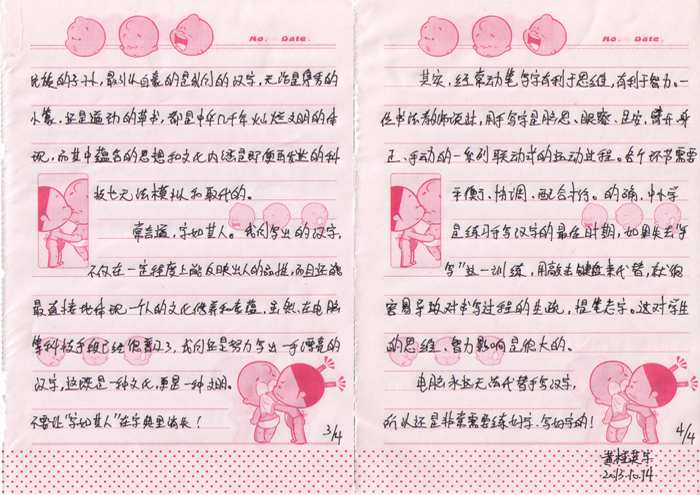 No. Date.
民族的子孙,最引以自豪的是我们的汉字,无论是隽秀的
小篆,还是遒劲的草书,都是中华几千年灿烂文明的体
现,而其中蕴含的思想和文化内涵是即便再发达的科
技也无法模拟和取代的。
常言道,字如其人。我们写出的汉字,
不仅在一定程度上能反映出人的品性,而且还能
最直接地体现一个人的文化修养和底蕴,虽然,在电脑
等科技手段已经很普及了,我们还是努力写出一手漂亮的
汉字,这既是一种文化,更是一种文明。
不要让“字如其人”在字典里消失!
3/4
No. Date.
其实,经常动笔写字有利于思维,有利于智力。一
位书法教师谈过,用手写字是脑思、眼察、足安、臂开、身
正、手动的一系列联动式的运动过程。各个环节需要
平衡、协调、配合才行。的确,中小学
是练习手写汉字的最佳时期,如果失去“手
写”这一训练,用敲击键盘来代替,就很
容易导致对书写过程的生疏,提笔忘字。这对学生
的思维、智力影响是很大的。
电脑永远无法代替手写汉字,
所以还是非常需要练好字、写好字的!
4/4
黄桂英字
2013.10.14